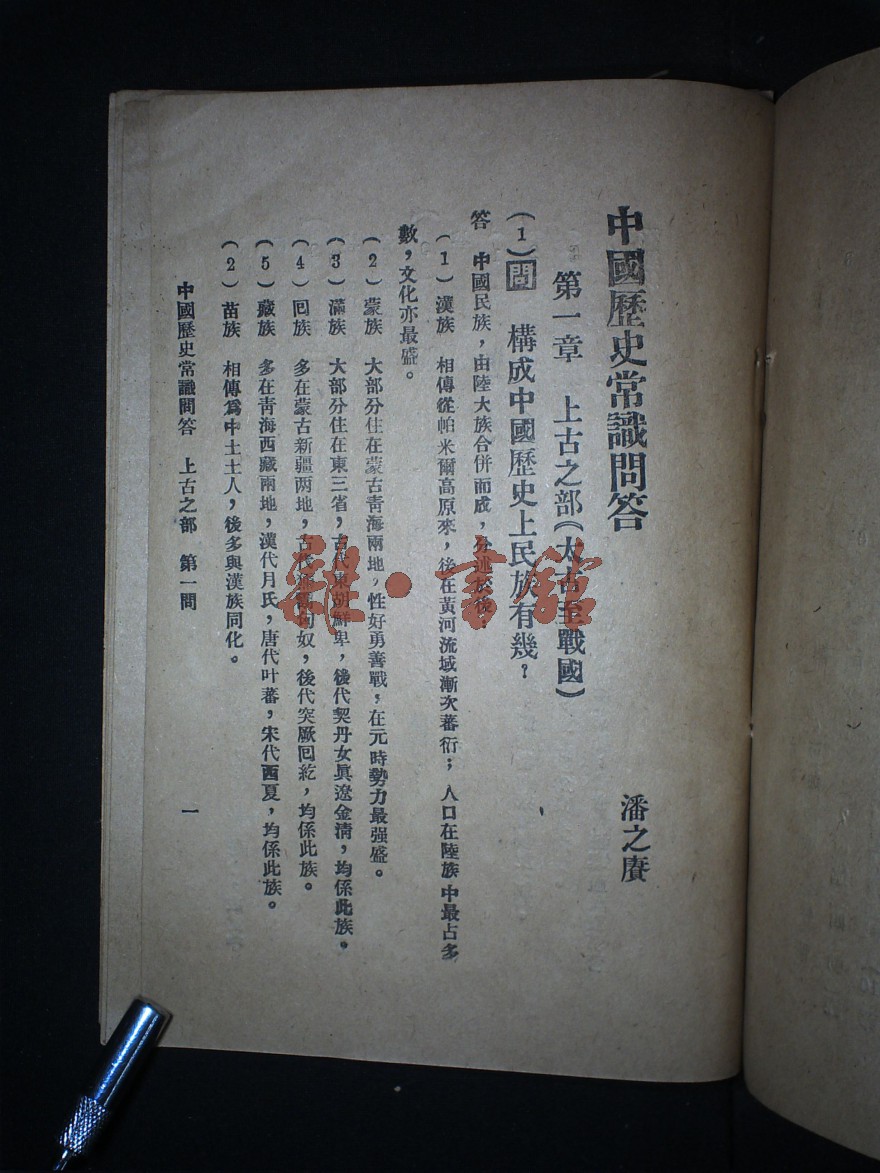 中國歷史常識問答
潘之賡
第一章　上古之部(太古至戰國)
(1)問　構成中國歷史上民族有幾？
答　中國民族，由陸大族合併而成，分述於後：
(1)漢族　相傳從帕米爾高原來，後在黃河流域漸次蕃衍；人口在陸族中最占多
數，文化亦最盛。
(2)蒙族　大部分住在蒙古青海兩地，性好勇善戰，在元時勢力最强盛。
(3)滿族　大部分住在東三省，古代東胡鮮卑，後代契丹女眞遼金清，均係此族。
(4)回族　多在蒙古新疆两地，古代匈奴，後代突厥回紇，均係此族。
(5)藏族　多在青海西藏兩地，漢代月氏，唐代叶蕃，宋代西夏，均係此族。
(2)苗族　相傳爲中土土人，後多與漢族同化。
中國歷史常識問答　上古之部　第一問
一
雜·書館